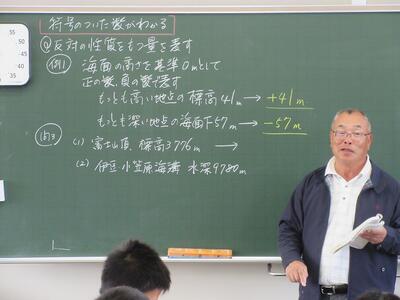 符号のついた数がわかる
Q反対の性質をもつ量を表す
例1 海面の高さを基準0mとして
正の数、負の数で表す
もっとも高い地点の標高41m → +41m
もっとも深い地点の海面下57m → -57m
例3
(1) 富士山頂 標高3776m →
(2) 伊豆小笠原海溝 水深9780m
55
50
45
35